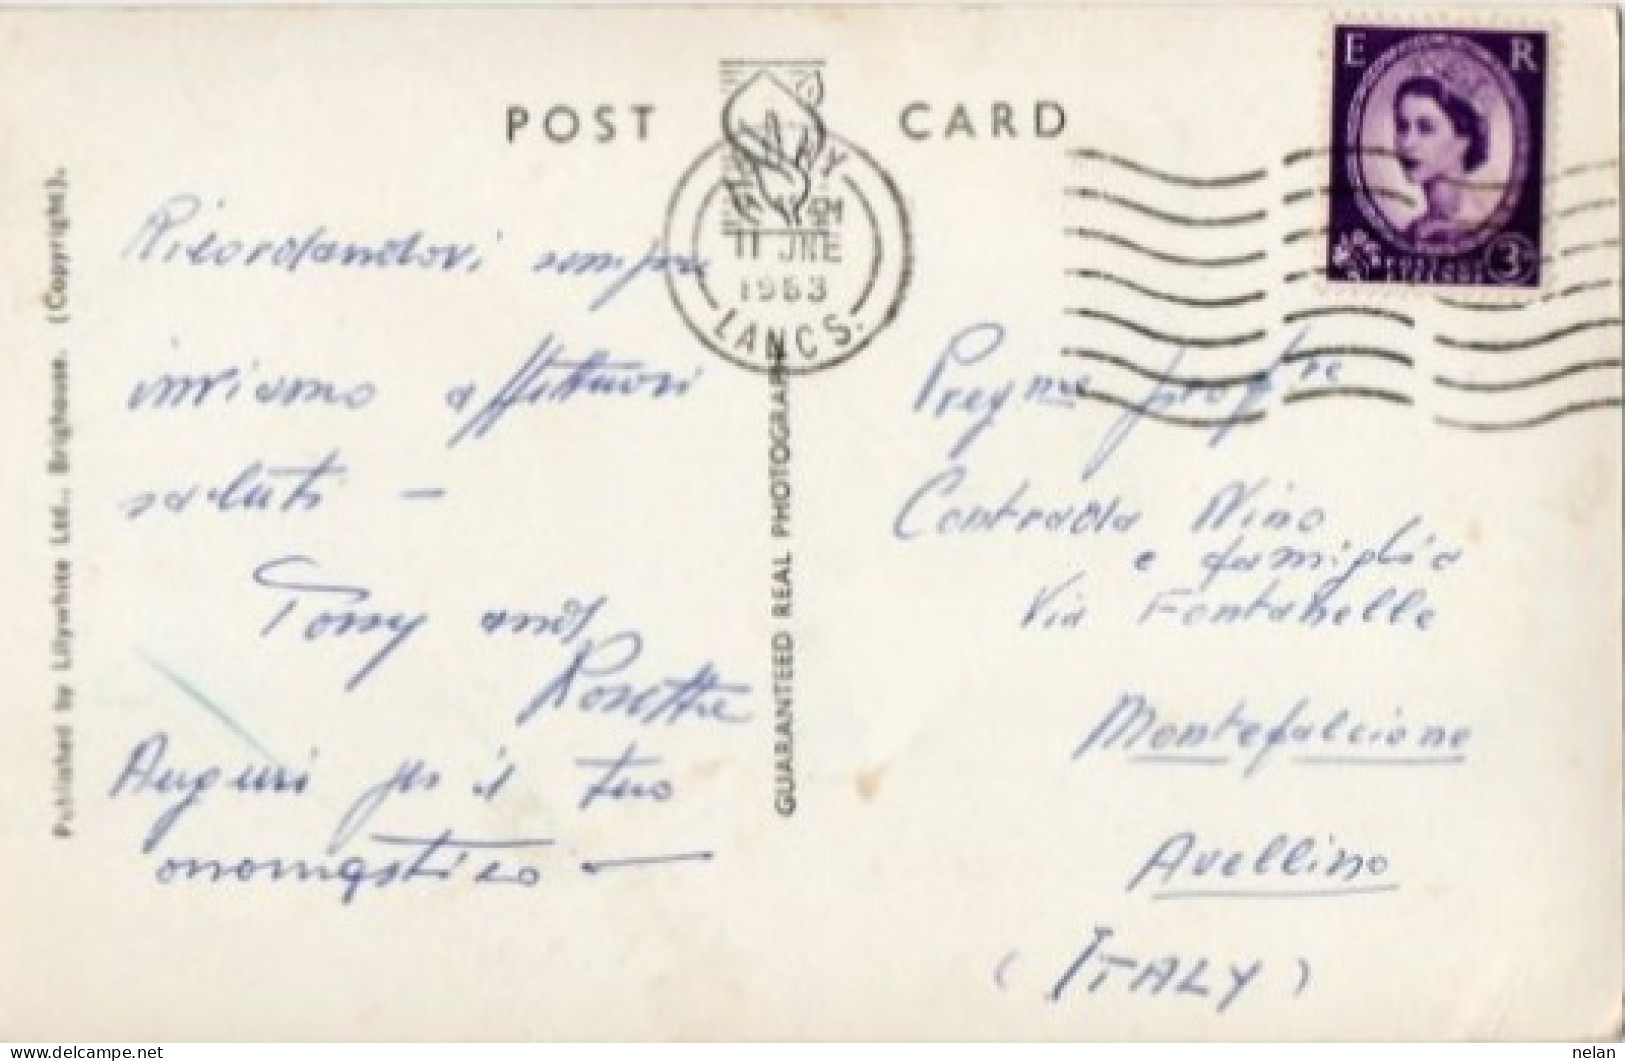 POST CARD
E R
11 JNE
1963
LANCS.
3
Ricordandovi sempre
inviamo affettuosi
saluti —
Tony and
Rosetta
Auguri per il tuo
onomastico —
Contrada Nino
e famiglia
Via Fontanelle
Montefalcione
Avellino
(ITALY)
Published by Lilywhite Ltd., Brighouse. (Copyright).
GUARANTEED REAL PHOTOGRAPH
delcampe.net
nelan